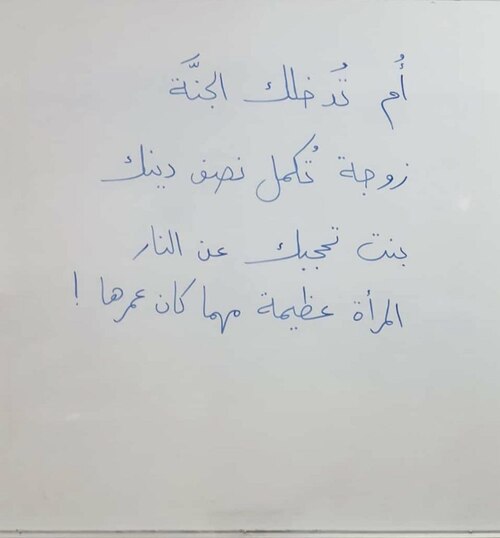 أُم تُدخلك الجنَّة
زوجة تُكمل نصف دينك
بنت تحجبك عن النار
المرأة عظيمة مهما كان عمرها !